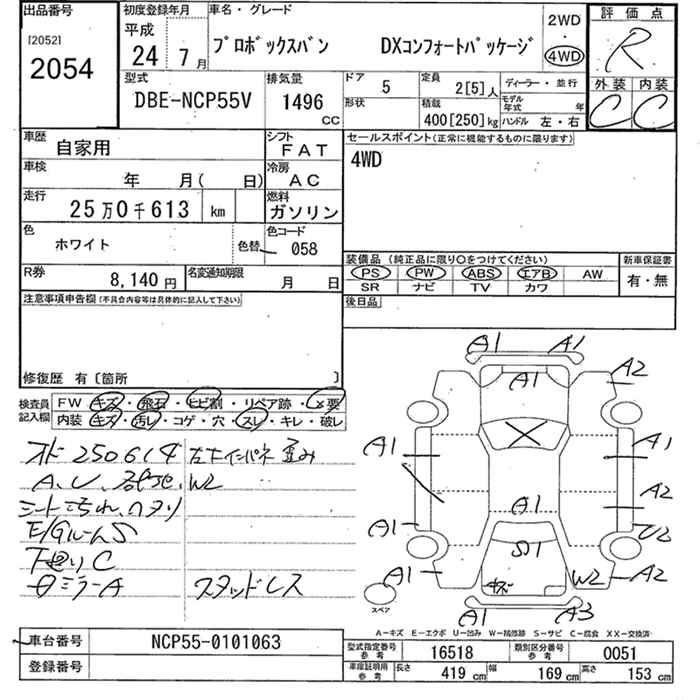 出品番号
[2052]
2054
初度登録年月
平成
24 7 月
車名・グレード
プロボックスバン DXコンフォートパッケージ
2WD
・
4WD
評価点
R
外装 内装
C C
型式
DBE-NCP55V
排気量
1496
CC
ドア 5
形状
定員 2[5]人
積載
400[250]kg
ディーラー・並行
モデル年式 年
ハンドル 左・右
車歴
自家用
シフト
FAT
車検
年 月( 日)
冷房
AC
走行
25万0千613 km
燃料
ガソリン
色
ホワイト
色替
色コード
058
R券
8,140円
名変通知期限
月 日
セールスポイント(正常に機能するものに限ります)
4WD
装備品(純正品に限り○をつけてください)
PS PW ABS エアB AW
SR ナビ TV カワ
新車保証書
有・無
後日品
注意事項申告欄(不具合内容等は具体的に記入して下さい)
修復歴 有〔箇所 〕
検査員記入欄
FW キズ・飛石・ヒビ割・リペア跡・×要
内装 キズ・汚レ・コゲ・穴・スレ・キレ・破レ
オド 250614
左右インパネ歪み
A、U、
W2
シート汚れ、ヘタリ
E/GルームS
下廻りC
スタッドレス
A1 A1
A1 A2
A1 A1
A2
A1
A1 U2
S1
A1 キズ W2 A2
スペア
A1 A3
A-キズ E-エクボ U-凹み W-補修跡 S-サビ C-腐食 XX-交換済
車台番号 NCP55-0101063
登録番号
型式指定番号参考 16518
類別区分番号参考 0051
車庫証明用参考 長さ 419 cm 幅 169 cm 高さ 153 cm